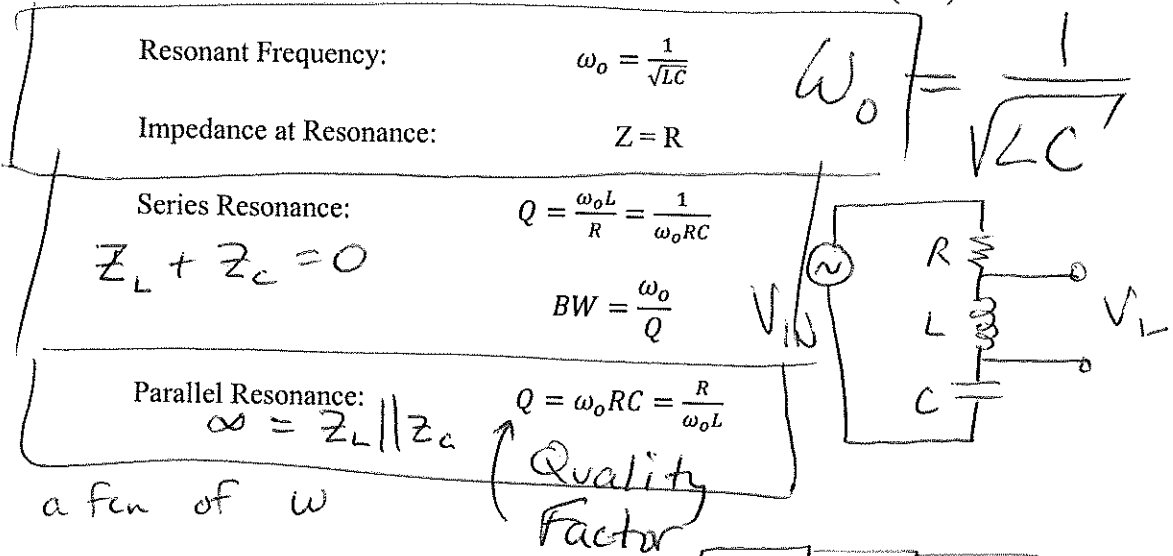 Resonant Frequency: ω₀ = 1/√LC
ω₀ = 1/√LC
Impedance at Resonance: Z = R
Series Resonance: Q = ω₀L/R = 1/ω₀RC
Z_L + Z_C = 0
BW = ω₀/Q
V_IN
R
L
C
V_L
Parallel Resonance: Q = ω₀RC = R/ω₀L
∞ = Z_L || Z_C
Quality
Factor
a fcn of ω